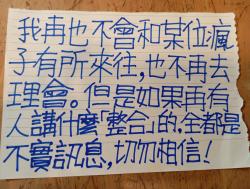 我再也不會和某位瘋
子有所來往,也不再去
理會。但是如果再有
人講什麼「整合」的,全都是
不實訊息,切勿相信!